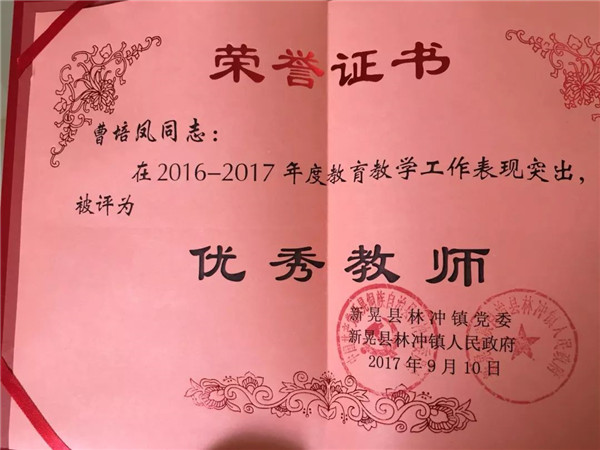 荣誉证书
曹培凤同志：
在2016–2017年度教育教学工作表现突出，
被评为
优秀教师
新晃县林冲镇党委
新晃县林冲镇人民政府
2017年9月10日